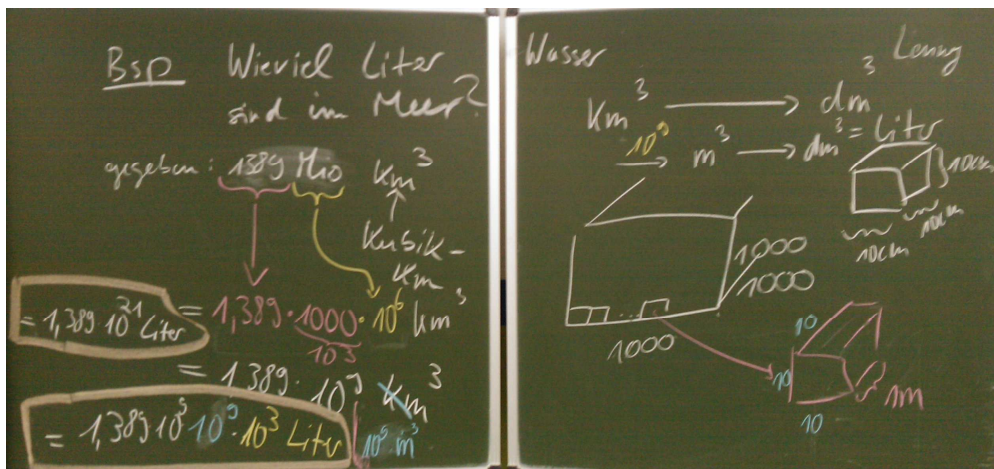 Bsp Wieviel Liter
sind im Meer?
gegeben: 1389 Mio km³
Kubik-
km
= 1,389 · 1000 · 10⁶ km³
10³
= 1,389 10²¹ Liter
= 1,389 · 10⁹ km³
= 1,389 10⁹ 10⁹ · 10³ Liter
10⁹ m³
Wasser
km³ → dm³
10⁹
→ m³ → dm³ = Liter
10cm
10cm
10cm
1000
1000
1000
10
10
1m
10